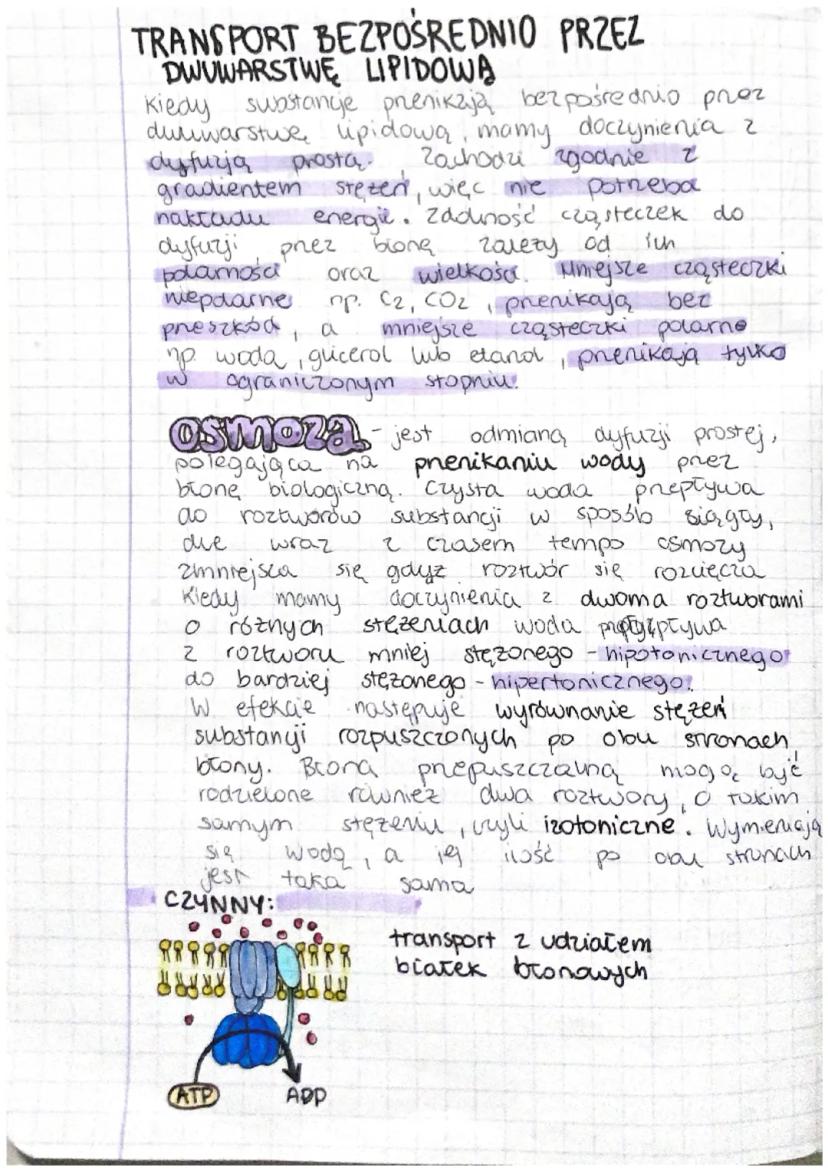 TRANSPORT BEZPOŚREDNIO PRZEZ
DWUWARSTWĘ LIPIDOWĄ
Kiedy substancje przenikają bezpośrednio przez
dwuwarstwę lipidową, mamy doczynienia z
dyfuzją prostą. Zachodzi zgodnie z
gradientem stężeń, więc nie potrzeba
nakładu energii. Zdolność cząsteczek do
dyfuzji przez błonę zależy od ich
polarności oraz wielkości. Mniejsze cząsteczki
niepolarne np. C2, CO2, przenikają bez
przeszkód, a mniejsze cząsteczki polarne
np woda, glicerol lub etanol, przenikają tylko
w ograniczonym stopniu.
OSMOZA - jest odmianą dyfuzji prostej,
polegająca na przenikaniu wody przez
błonę biologiczną. Czysta woda przepływa
do roztworów substancji w sposób ciągły,
ale wraz z czasem tempo osmozy
zmniejsza się gdyż roztwór się rozcięcza
Kiedy mamy doczynienia z dwoma roztworami
o różnych stężeniach woda
z roztworu mniej stężonego - hipotonicznego
do bardziej stężonego - hipertonicznego.
W efekcie następuje wyrównanie stężeń
substancji rozpuszczonych po obu stronach
błony. Błoną przepuszczalną mogą być
rodzielone również dwa roztwory, o takim
samym stężeniu, czyli izotoniczne. Wymieniają
się wodą, a jej ilość po obu stronach
jest taka sama
CZYNNY:
transport z udziałem
białek błonowych
ATP
ADP